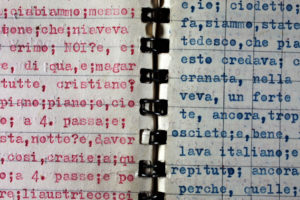 ;ciabiamo;messo;
bone;che;niaveva
crimo; NOI?e, e;
e, di qua,e;magar
tutte, cristiane?
piano;piano;e,cio
;e a 4. passa;e;
sta,notte?e,daver
,cosi,crazie;a;qu
;a 4. passe;e po
re;liaustriece;ci
e,ie; ciodetto;
fa,siammo,stato
tedesco,che pia
esto credava; c
oranata, nella
veva, un forte
te, ancora,trop
osciete;e,bene,
lava italiano;e
repituto; ancora
perche, quelle;